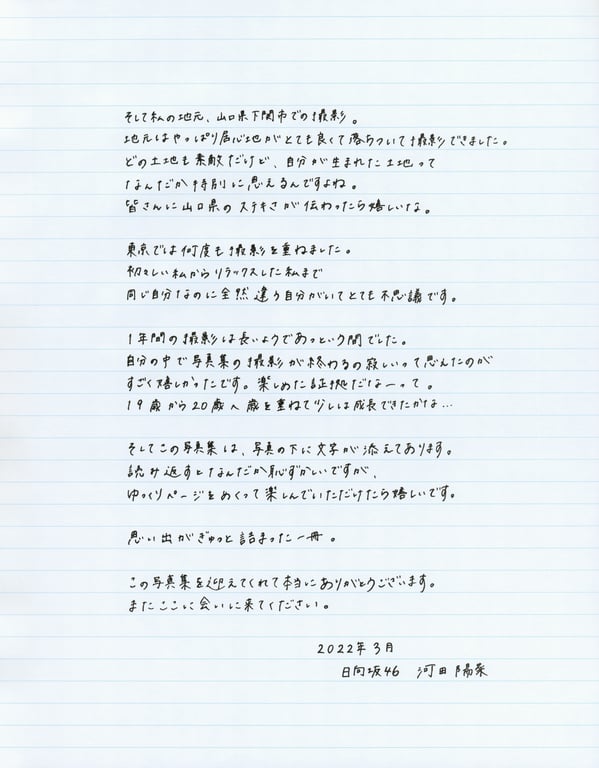 そして私の地元、山口県下関市での撮影。
地元はやっぱり居心地がとても良くて落ちついて撮影できました。
どの土地も素敵だけど、自分が生まれた土地って
なんだか特別に思えるんですよね。
皆さんに山口県のステキさが伝わったら嬉しいな。
東京では何度も撮影を重ねました。
初々しい私からリラックスした私まで
同じ自分なのに全然違う自分がいてとても不思議です。
1年間の撮影は長いようであっという間でした。
自分の中で写真集の撮影が終わるの寂しいって思えたのが
すごく嬉しかったです。楽しめた証拠だなーって。
19歳から20歳へ歳を重ねて少しは成長できたかな…
そしてこの写真集は、写真の下に文字が添えてあります。
読み返すとなんだか恥ずかしいですが、
ゆっくりページをめくって楽しんでいただけたら嬉しいです。
思い出がぎゅっと詰まった一冊。
この写真集を迎えてくれて本当にありがとうございます。
またここに会いに来てください。
2022年3月
日向坂46 河田陽菜